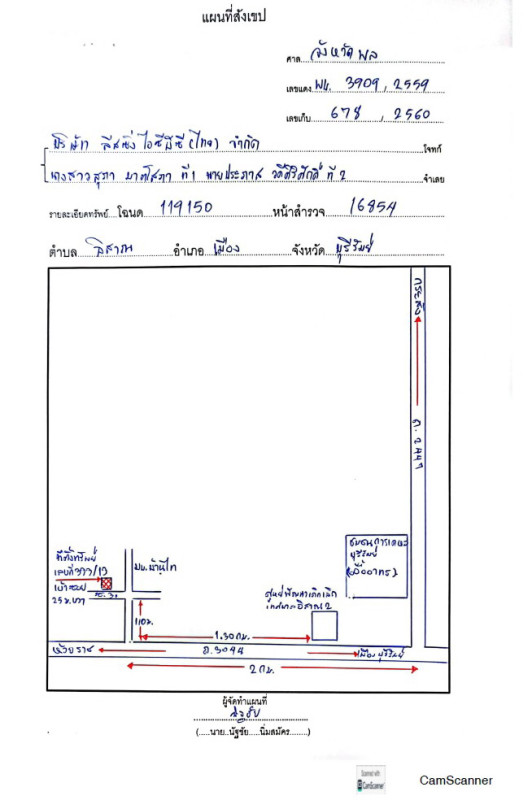 แผนที่สังเขป
ศาล จังหวัดพล
เลขแดง ผบ. 3909, 2559
เลขเก็บ 678, 2560
บริษัท ลีสซิ่ง ไอซีบีซี (ไทย) จำกัด โจทก์
นางสาวสุภา ที่ 1 นายประภาส ที่ 2 จำเลย
รายละเอียดทรัพย์ โฉนด 119150 หน้าสำรวจ 16854
ตำบล อิสาณ อำเภอ เมือง จังหวัด บุรีรัมย์
กระสัง
ถ. 2445
ชุมชนการเคหะ
บุรีรัมย์
(เอื้ออาทร)
ที่ตั้งทรัพย์
เลขที่ 377/13
เข้าซอย
25 ม.
ศูนย์พัฒนาเด็กเล็ก
เทศบาลอิสาณ 2
110 ม.
1.30 กม.
ห้วยราช
ถ. 3074
เมืองบุรีรัมย์
2 กม.
ผู้จัดทำแผนที่
(.....นาย..นัฐชัย.....นิ่มสมัคร........)
Scanned with
CamScanner
CamScanner